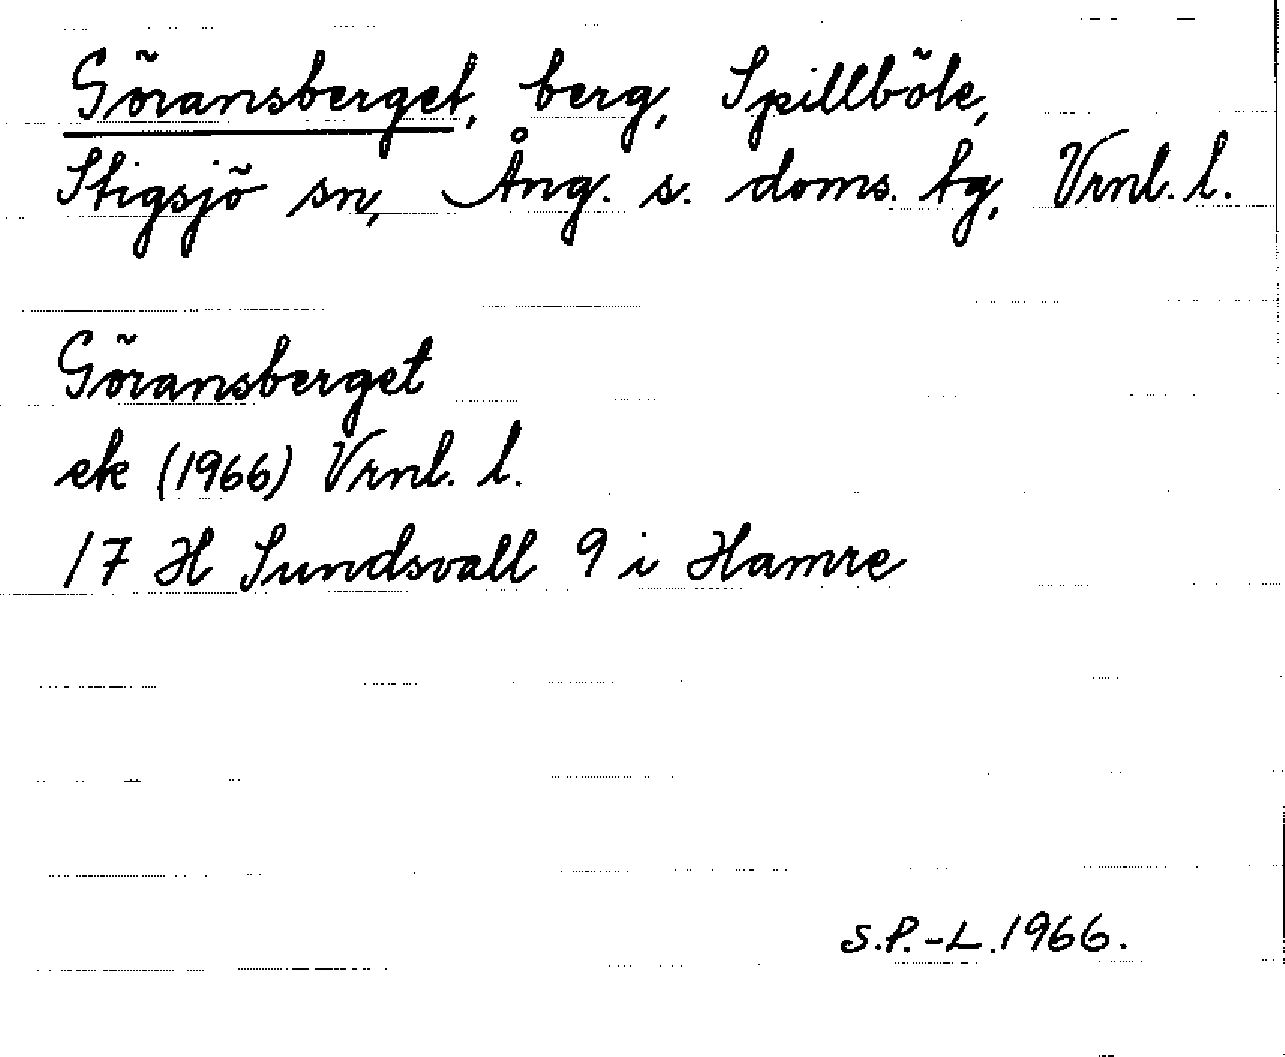 Göransberget, berg, Spillböle,
Stigsjö sn, Ång. s. doms. tg, Vrnl. l.
Göransberget
ek (1966) Vrnl. l.
17 H Sundsvall 9 i Hamre
S.P.-L. 1966.